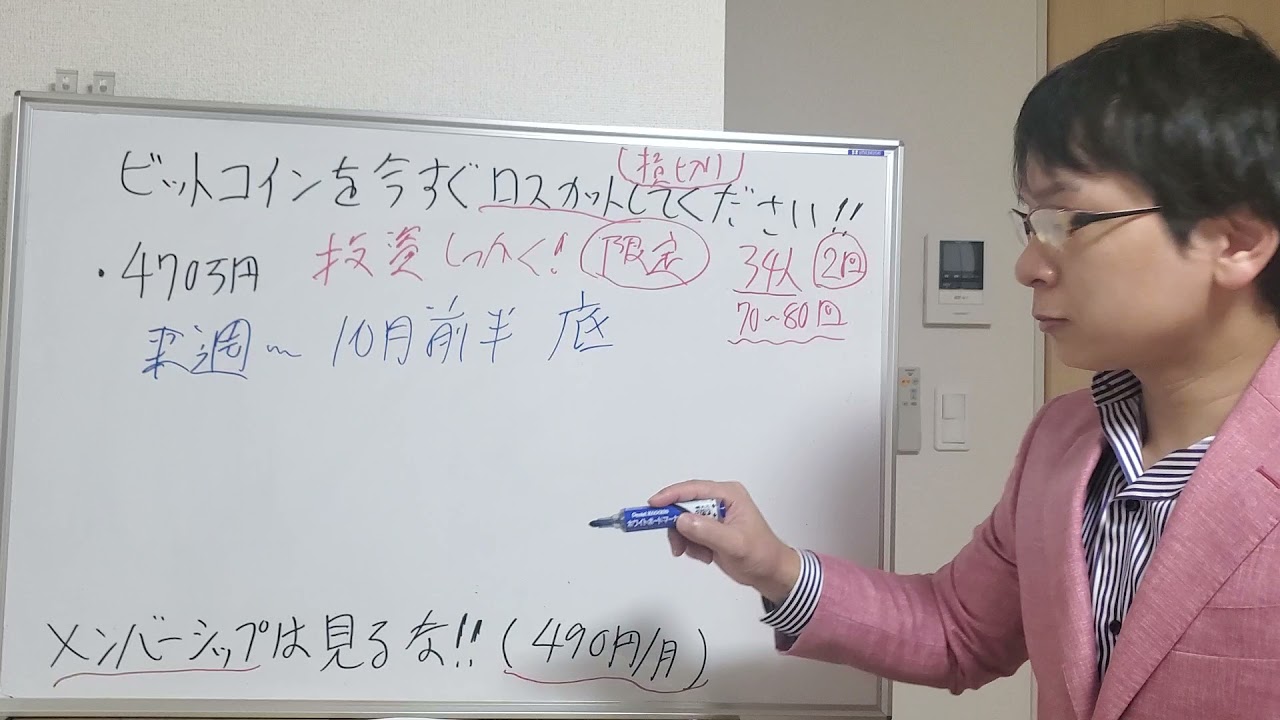 (損切り)
ビットコインを今すぐロスカットしてください!!
・470万円 投資しっかく! 限定 34人 2回
70~80回
来週~10月前半 底
メンバーシップは見るな!! (490円/月)
Pentel
ホワイトボードマーカー